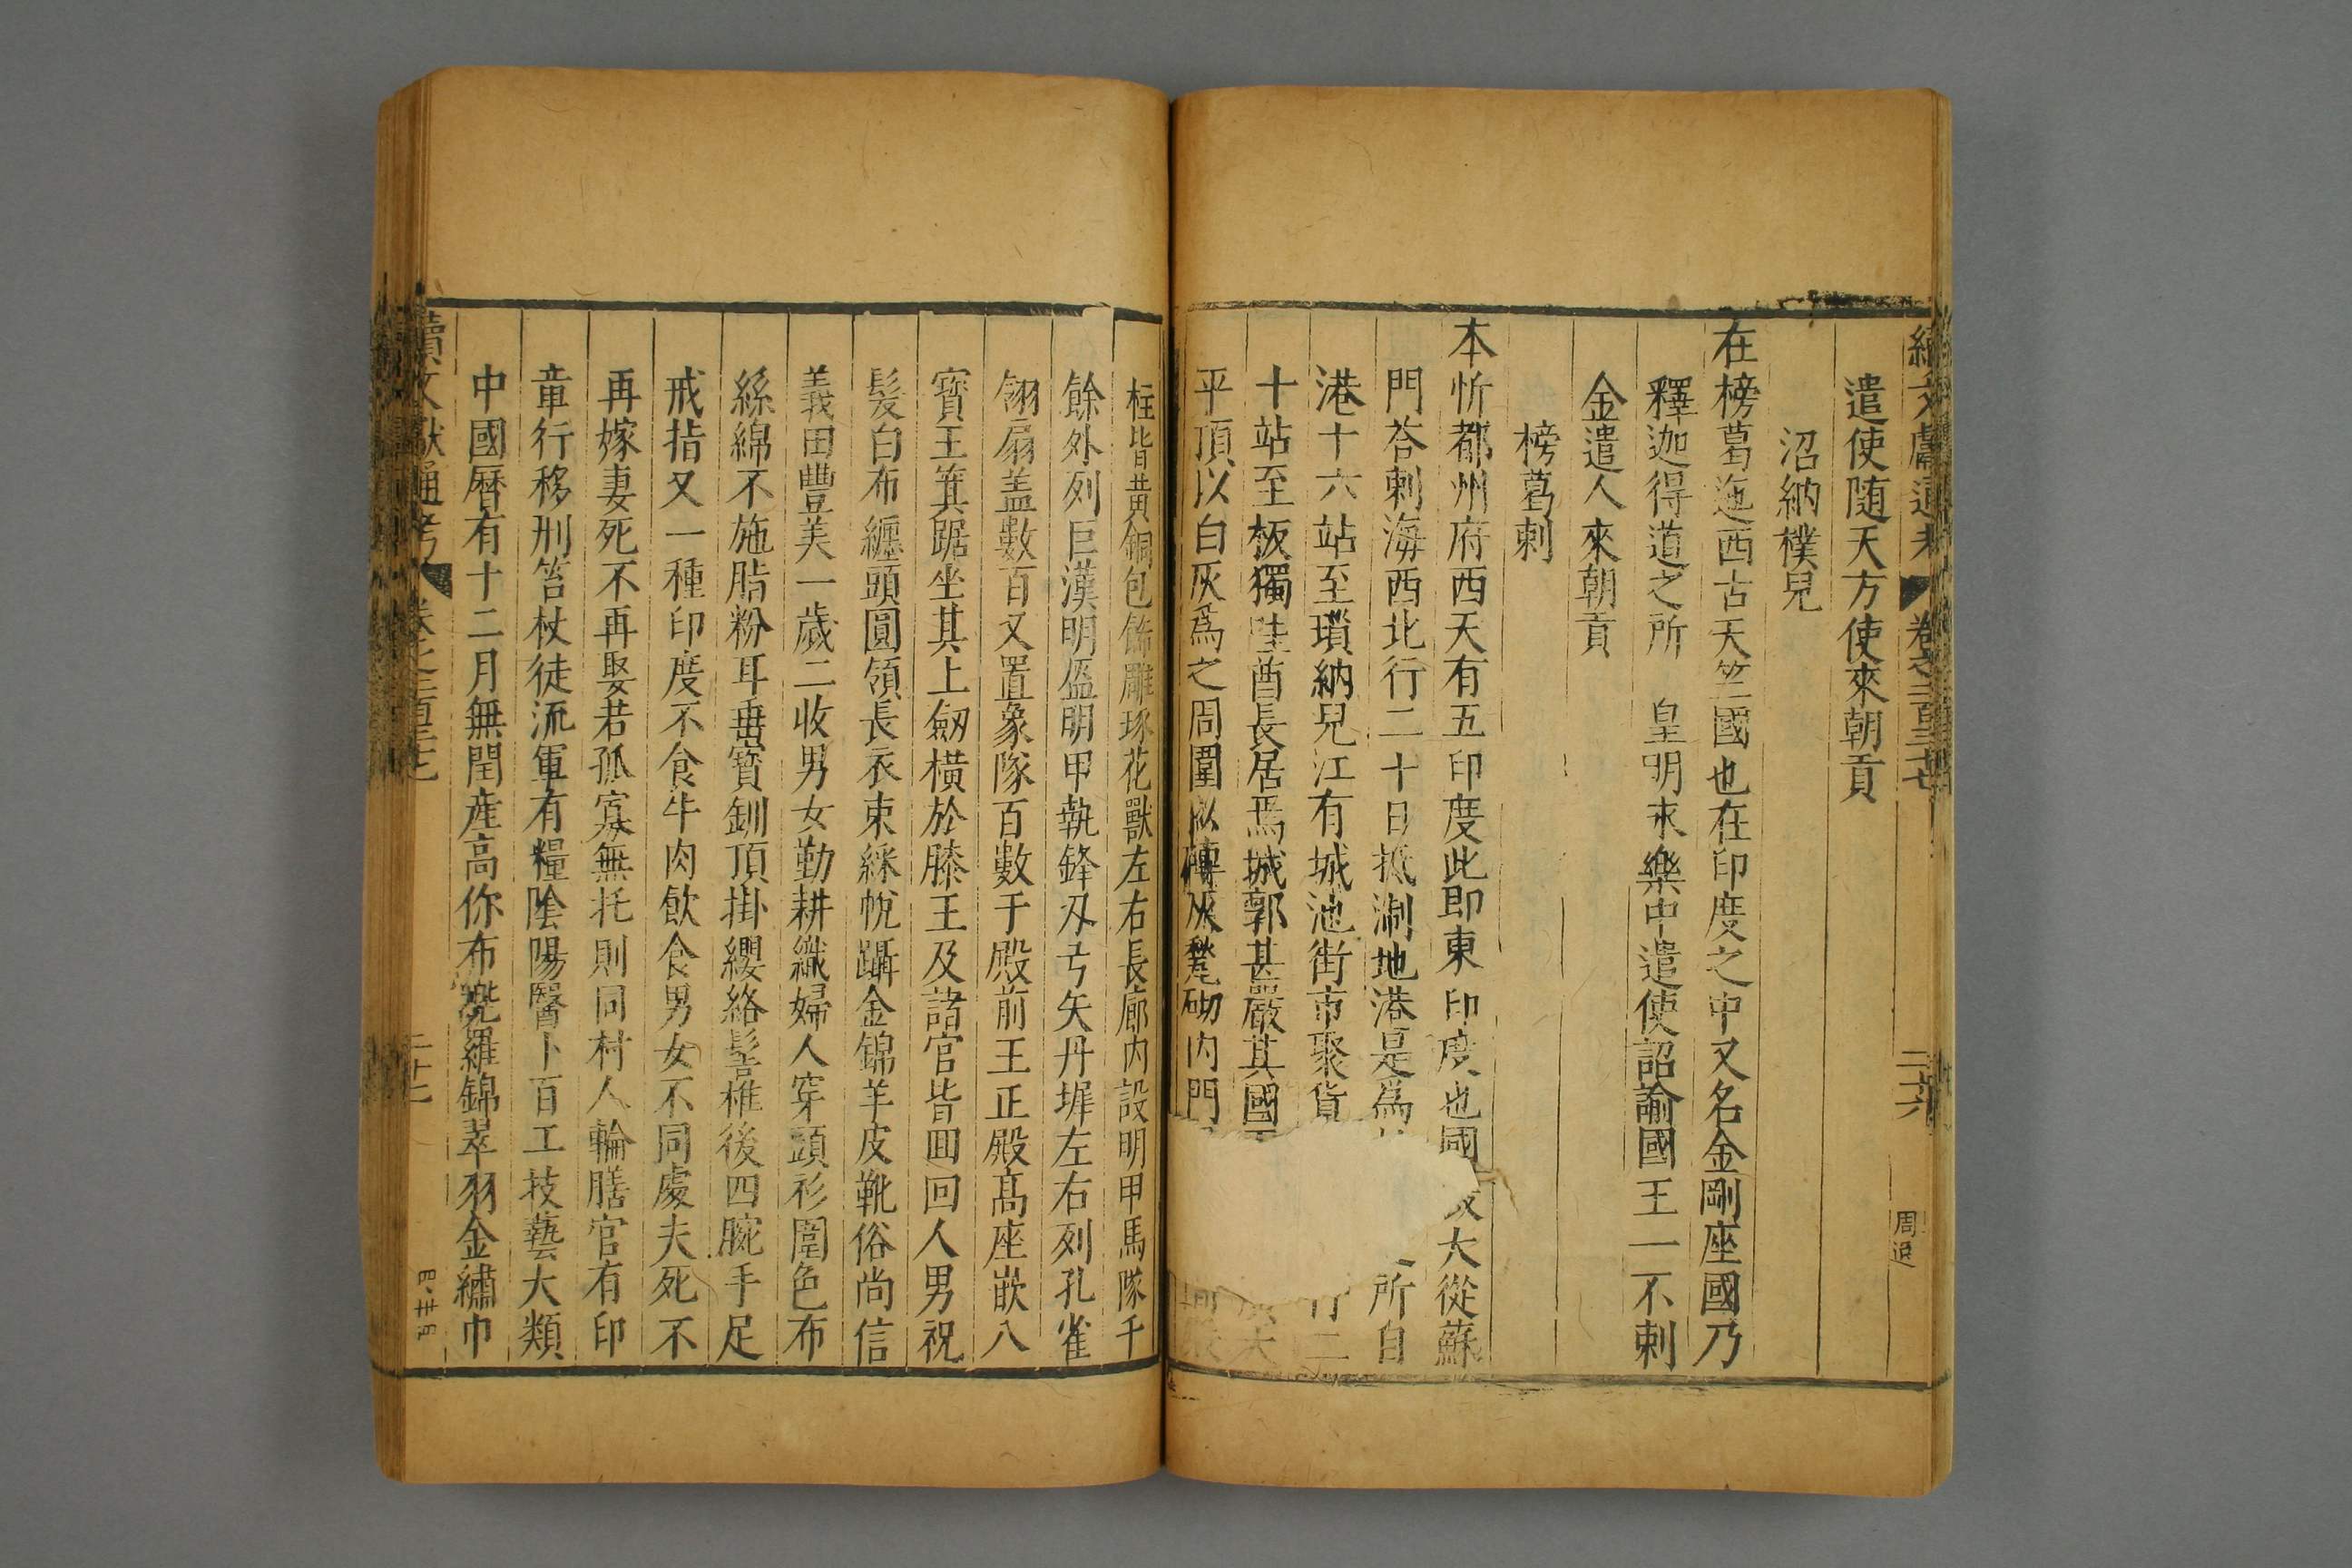 遣使隨天方使來朝貢
沼納樸兒
在榜葛迤西古天竺國也在印度之中又名金剛座國乃
釋迦得道之所　皇明永樂中遣使詔諭國王一不剌
金遣人來朝貢
榜葛剌
本忻都州府西天有五印度此即東印度也國大從蘇
門荅剌海西北行二十日抵淛地港是爲所自
港十六站至瑣納兒江有城池街市聚貨二
十站至板獨哇酋長居焉城郭甚嚴其國大
平頂以白灰爲之周圍以磚灰甃砌内門
柱皆黄銅包餙雕琢花獸左右長廊内設明甲馬隊千
餘外列巨漢明盔明甲執鋒刃弓矢丹墀左右列孔雀
翎扇盖數百又置象隊百數于殿前王正殿髙座嵌八
寳王箕踞坐其上劒横於膝王及諸官皆囬回人男祝
髮白布纏頭圓領長衣束綵帨躡金錦羊皮靴俗尚信
義田豐美一歲二收男女勤耕織婦人穿頭衫圍色布
絲綿不施脂粉耳垂寳釧頂掛纓絡髻椎後四腕手足
戒指又一種印度不食牛肉飲食男女不同處夫死不
再嫁妻死不再娶若孤寡無托則同村人輪膳官有印
章行移刑笞杖徒流軍有糧隂陽醫卜百工技藝大類
中國曆有十二月無閏産高你布㲯羅錦翠羽金繡巾
續文獻通考　卷之二百三十七　二十七